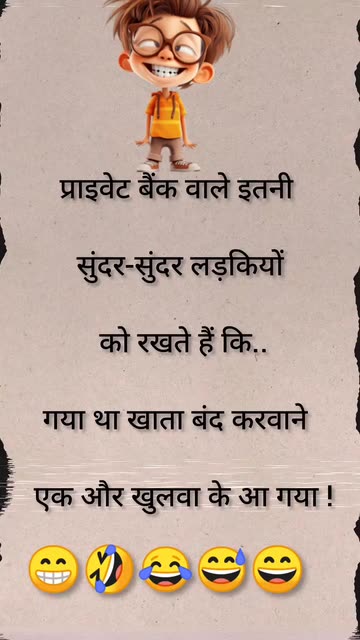 प्राइवेट बैंक वाले इतनी
सुंदर-सुंदर लड़कियों
को रखते हैं कि..
गया था खाता बंद करवाने
एक और खुलवा के आ गया !